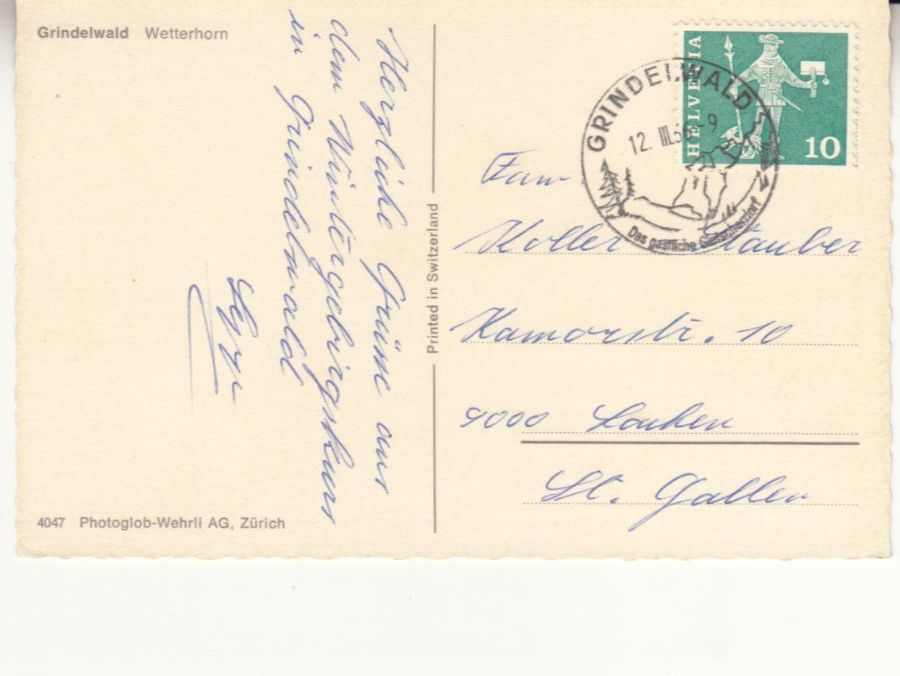 Grindelwald Wetterhorn
Herzliche Grüsse aus
dem Wintergebirgskurs
in Grindelwald
4047 Photoglob-Wehrli AG, Zürich
Printed in Switzerland
HELVETIA
10
GRINDELWALD
12. III. -9
Das gastliche Gletscherdorf
Fam
Koller Stauber
Kamorstr. 10
9000 Lachen
St. Gallen